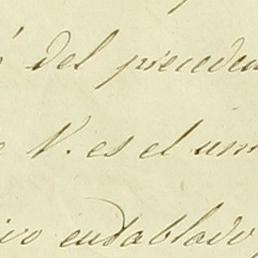 del preceden
V. es el uni
ivo entablado